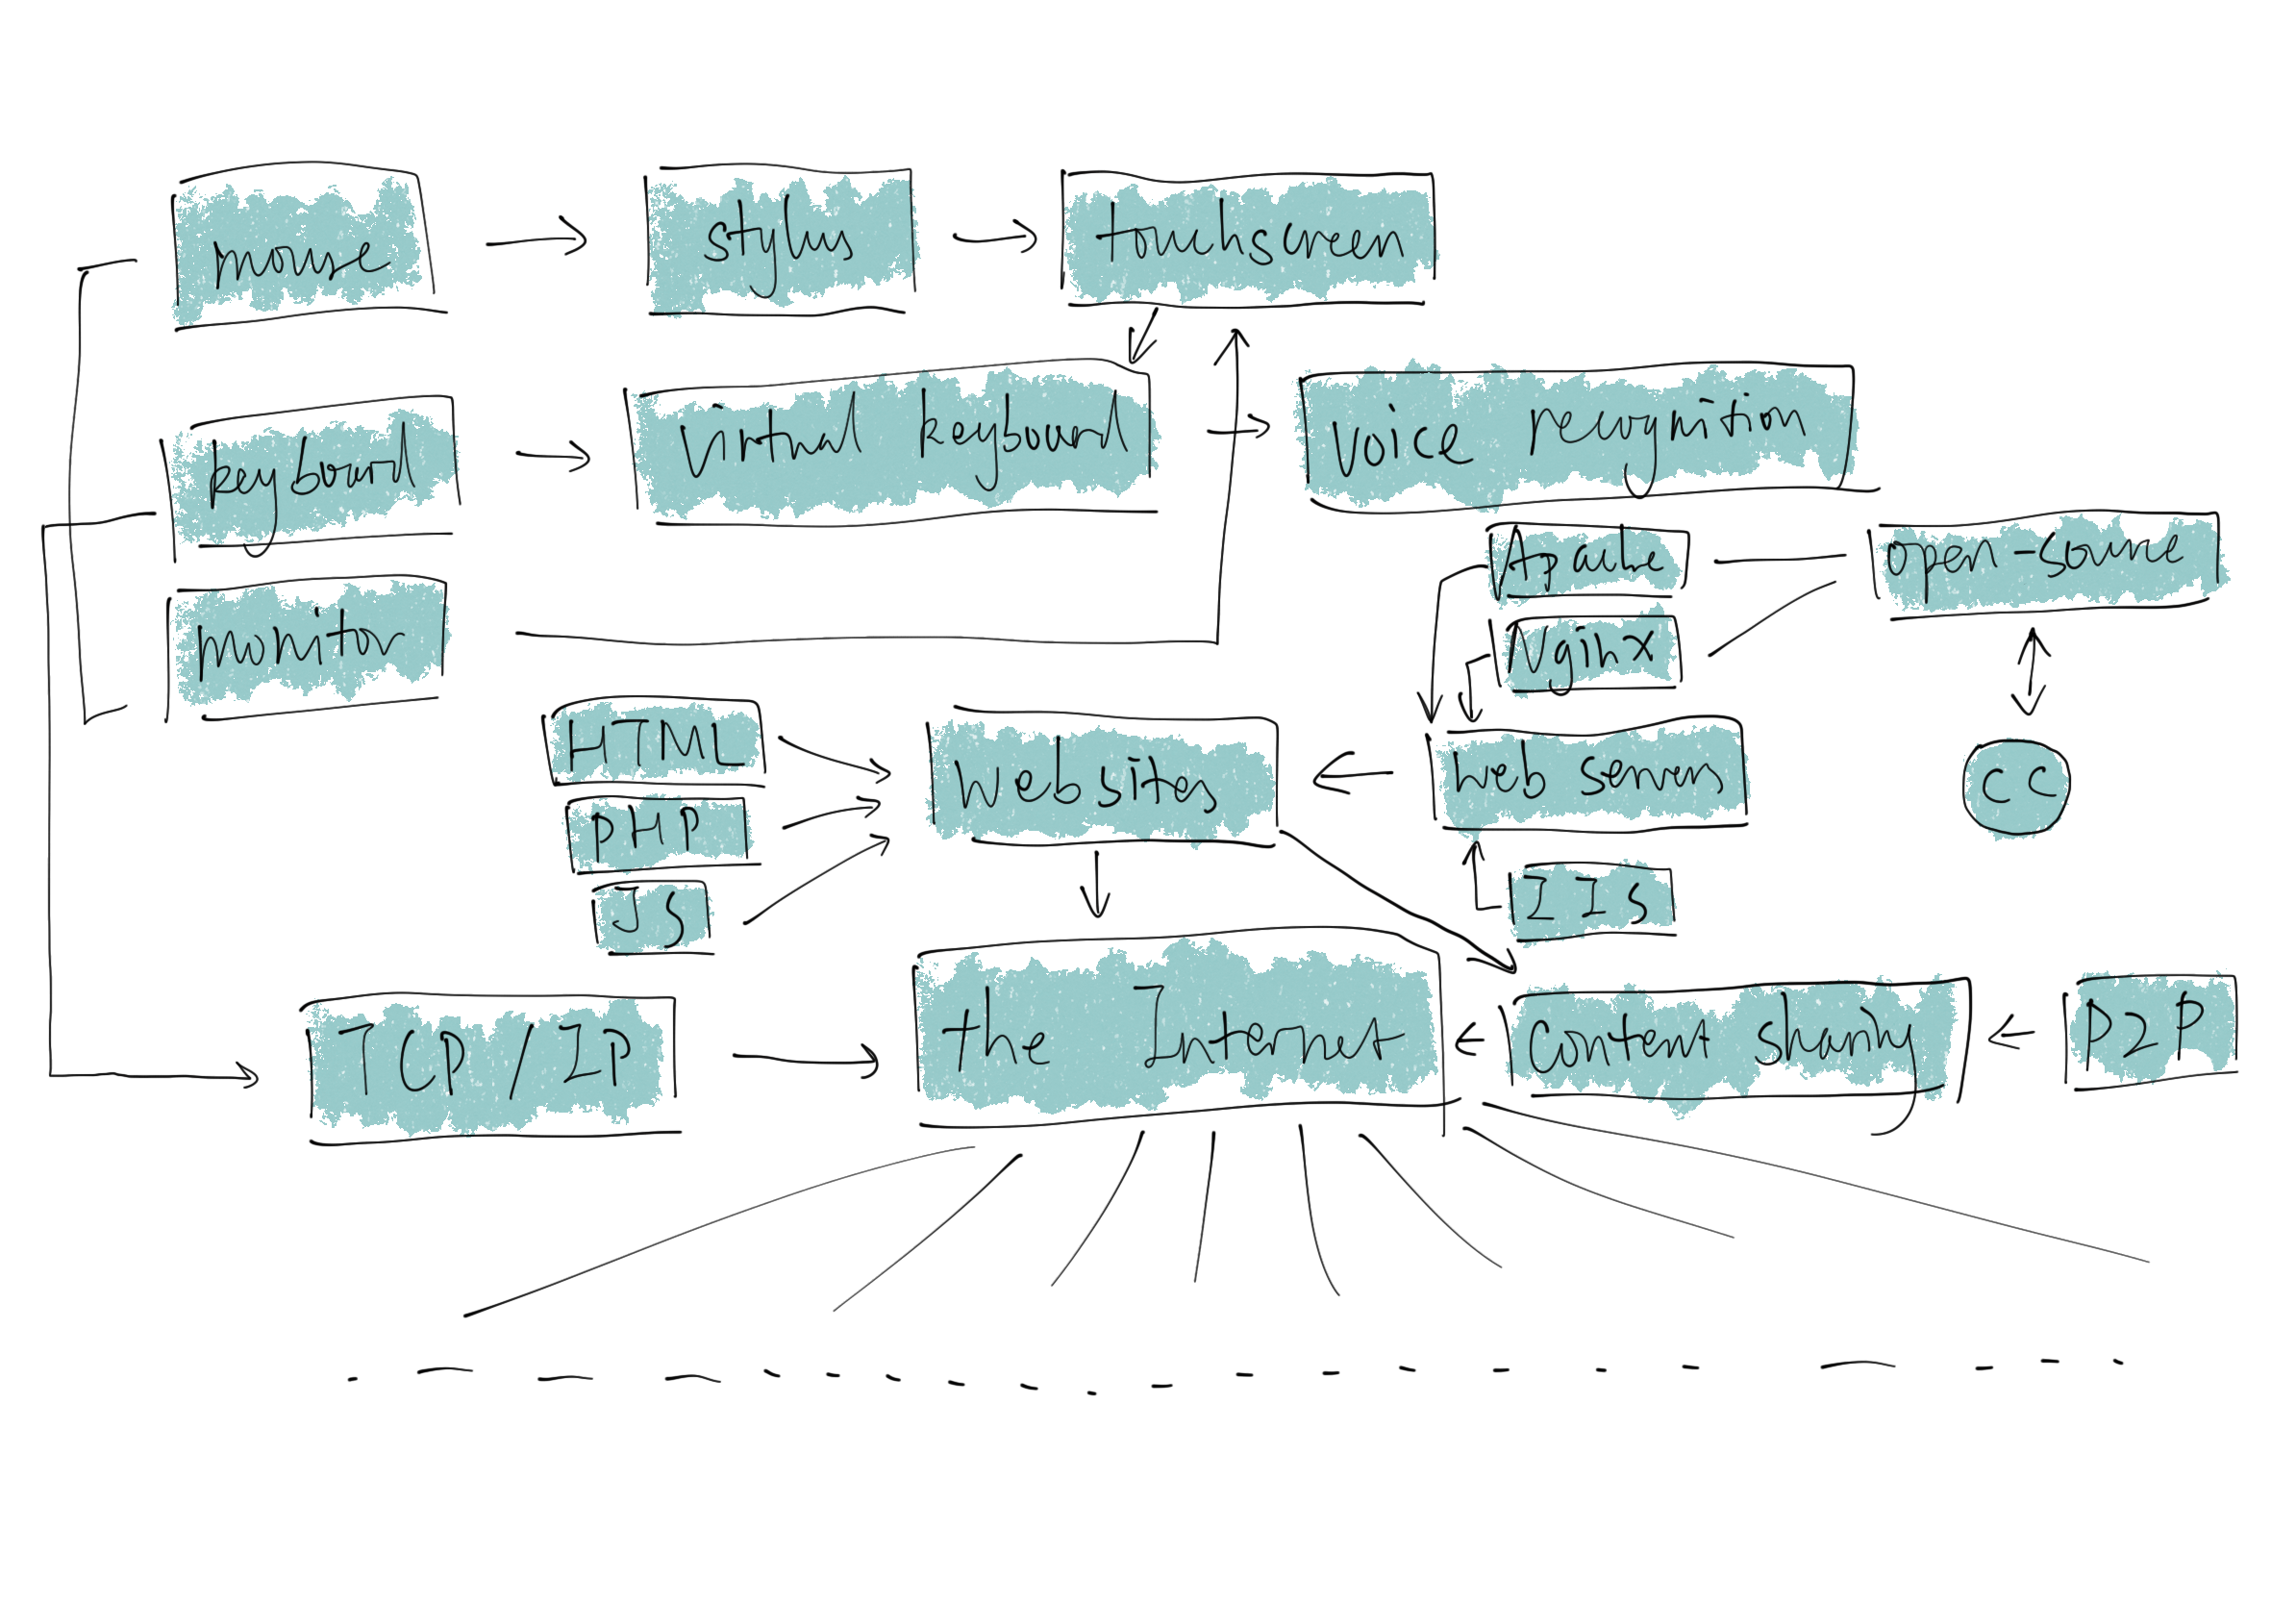 mouse
stylus
touchscreen
keyboard
virtual keyboard
voice recognition
monitor
Apache
open-source
Nginx
HTML
PHP
JS
websites
web servers
CC
IIS
TCP/IP
the Internet
content sharing
P2P